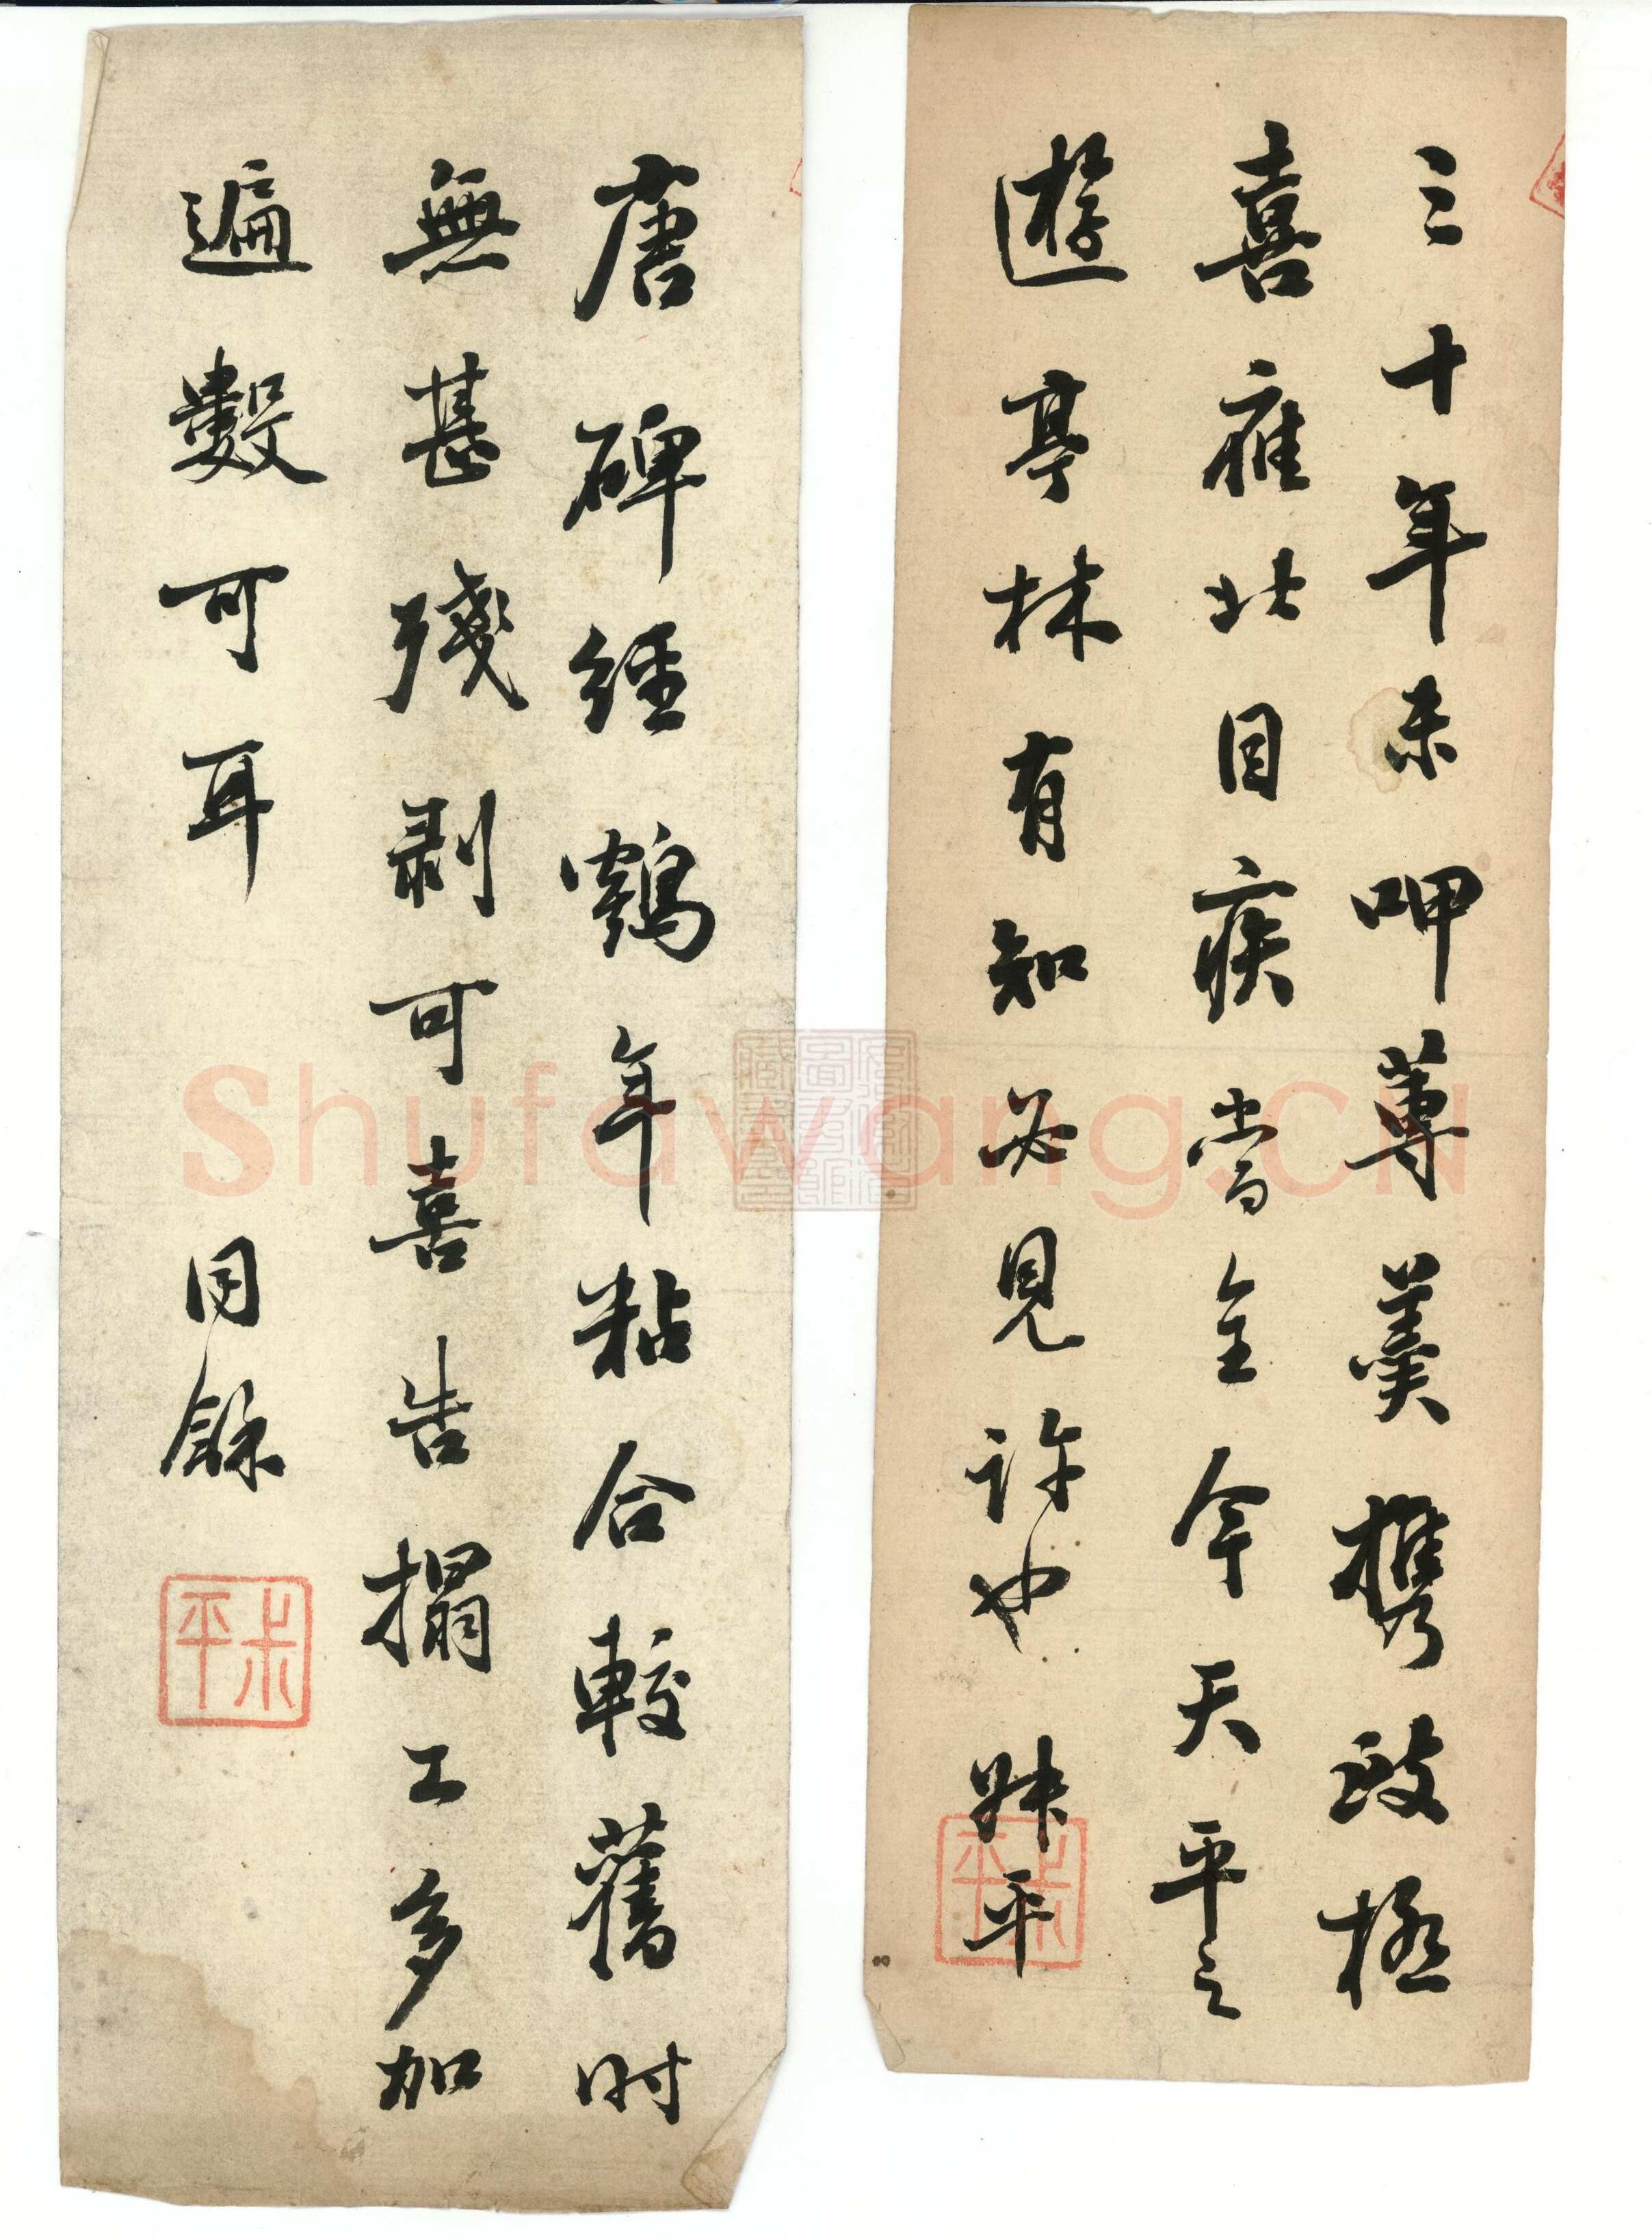 三十年未呷蓴羹携致極
喜雇北目疾當全今天平之
遊亭林有知必見許也 昧平
唐碑經鶴年粘合較舊時
無甚殘剥可喜告搨工多加
遍數可耳 同龢
未平
未平
Shufawang.CN